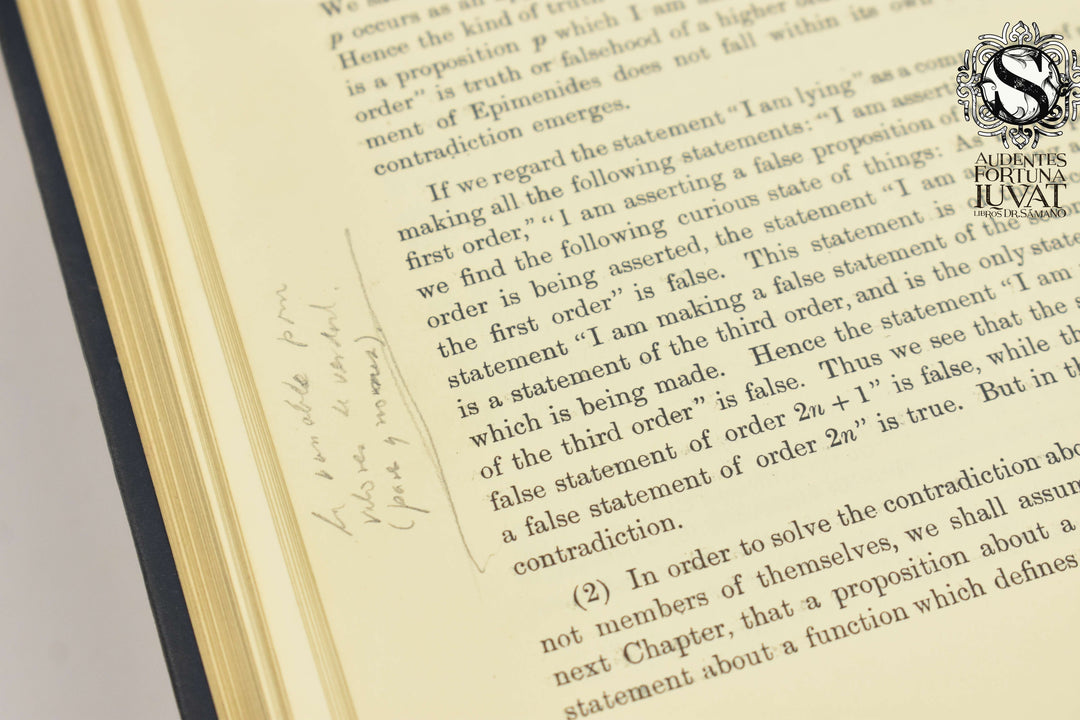 p occurs as an
Hence the kind of truth
is a proposition p which I am
order" is truth or falsehood of a higher
ment of Epimenides does not fall within its own
contradiction emerges.
If we regard the statement "I am lying" as a
making all the following statements: "I am
first order," "I am asserting a false proposition of
we find the following curious state of things: As
order is being asserted, the statement "I am
the first order" is false. This statement is
statement "I am making a false statement of the
is a statement of the third order, and is the only
which is being made. Hence the statement "I am
of the third order" is false. Thus we see that the
false statement of order 2n + 1" is false, while
a false statement of order 2n" is true. But in
contradiction.
(2) In order to solve the contradiction
not members of themselves, we shall
next Chapter, that a proposition about a
statement about a function which defines
S
AUDENTES
FORTUNA
IUVAT
LIBROS DR. SÁMANO